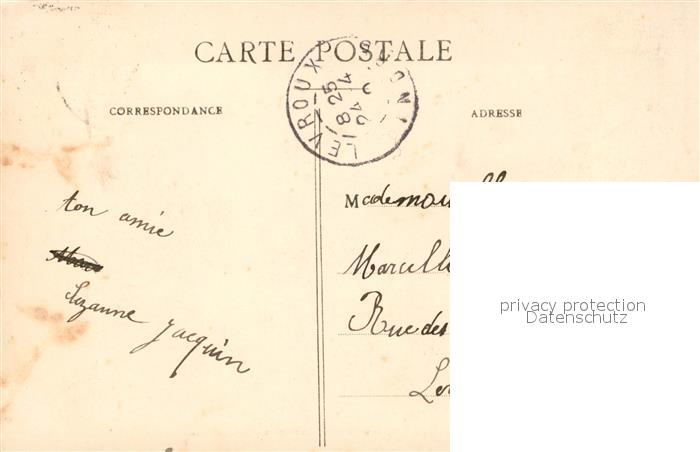 CARTE POSTALE
CORRESPONDANCE
ADRESSE
LEVROUX
8 25
24 4
ton amie
Suzanne Jacquin
Mademoisell
Marcell
Rue des
privacy protection
Datenschutz